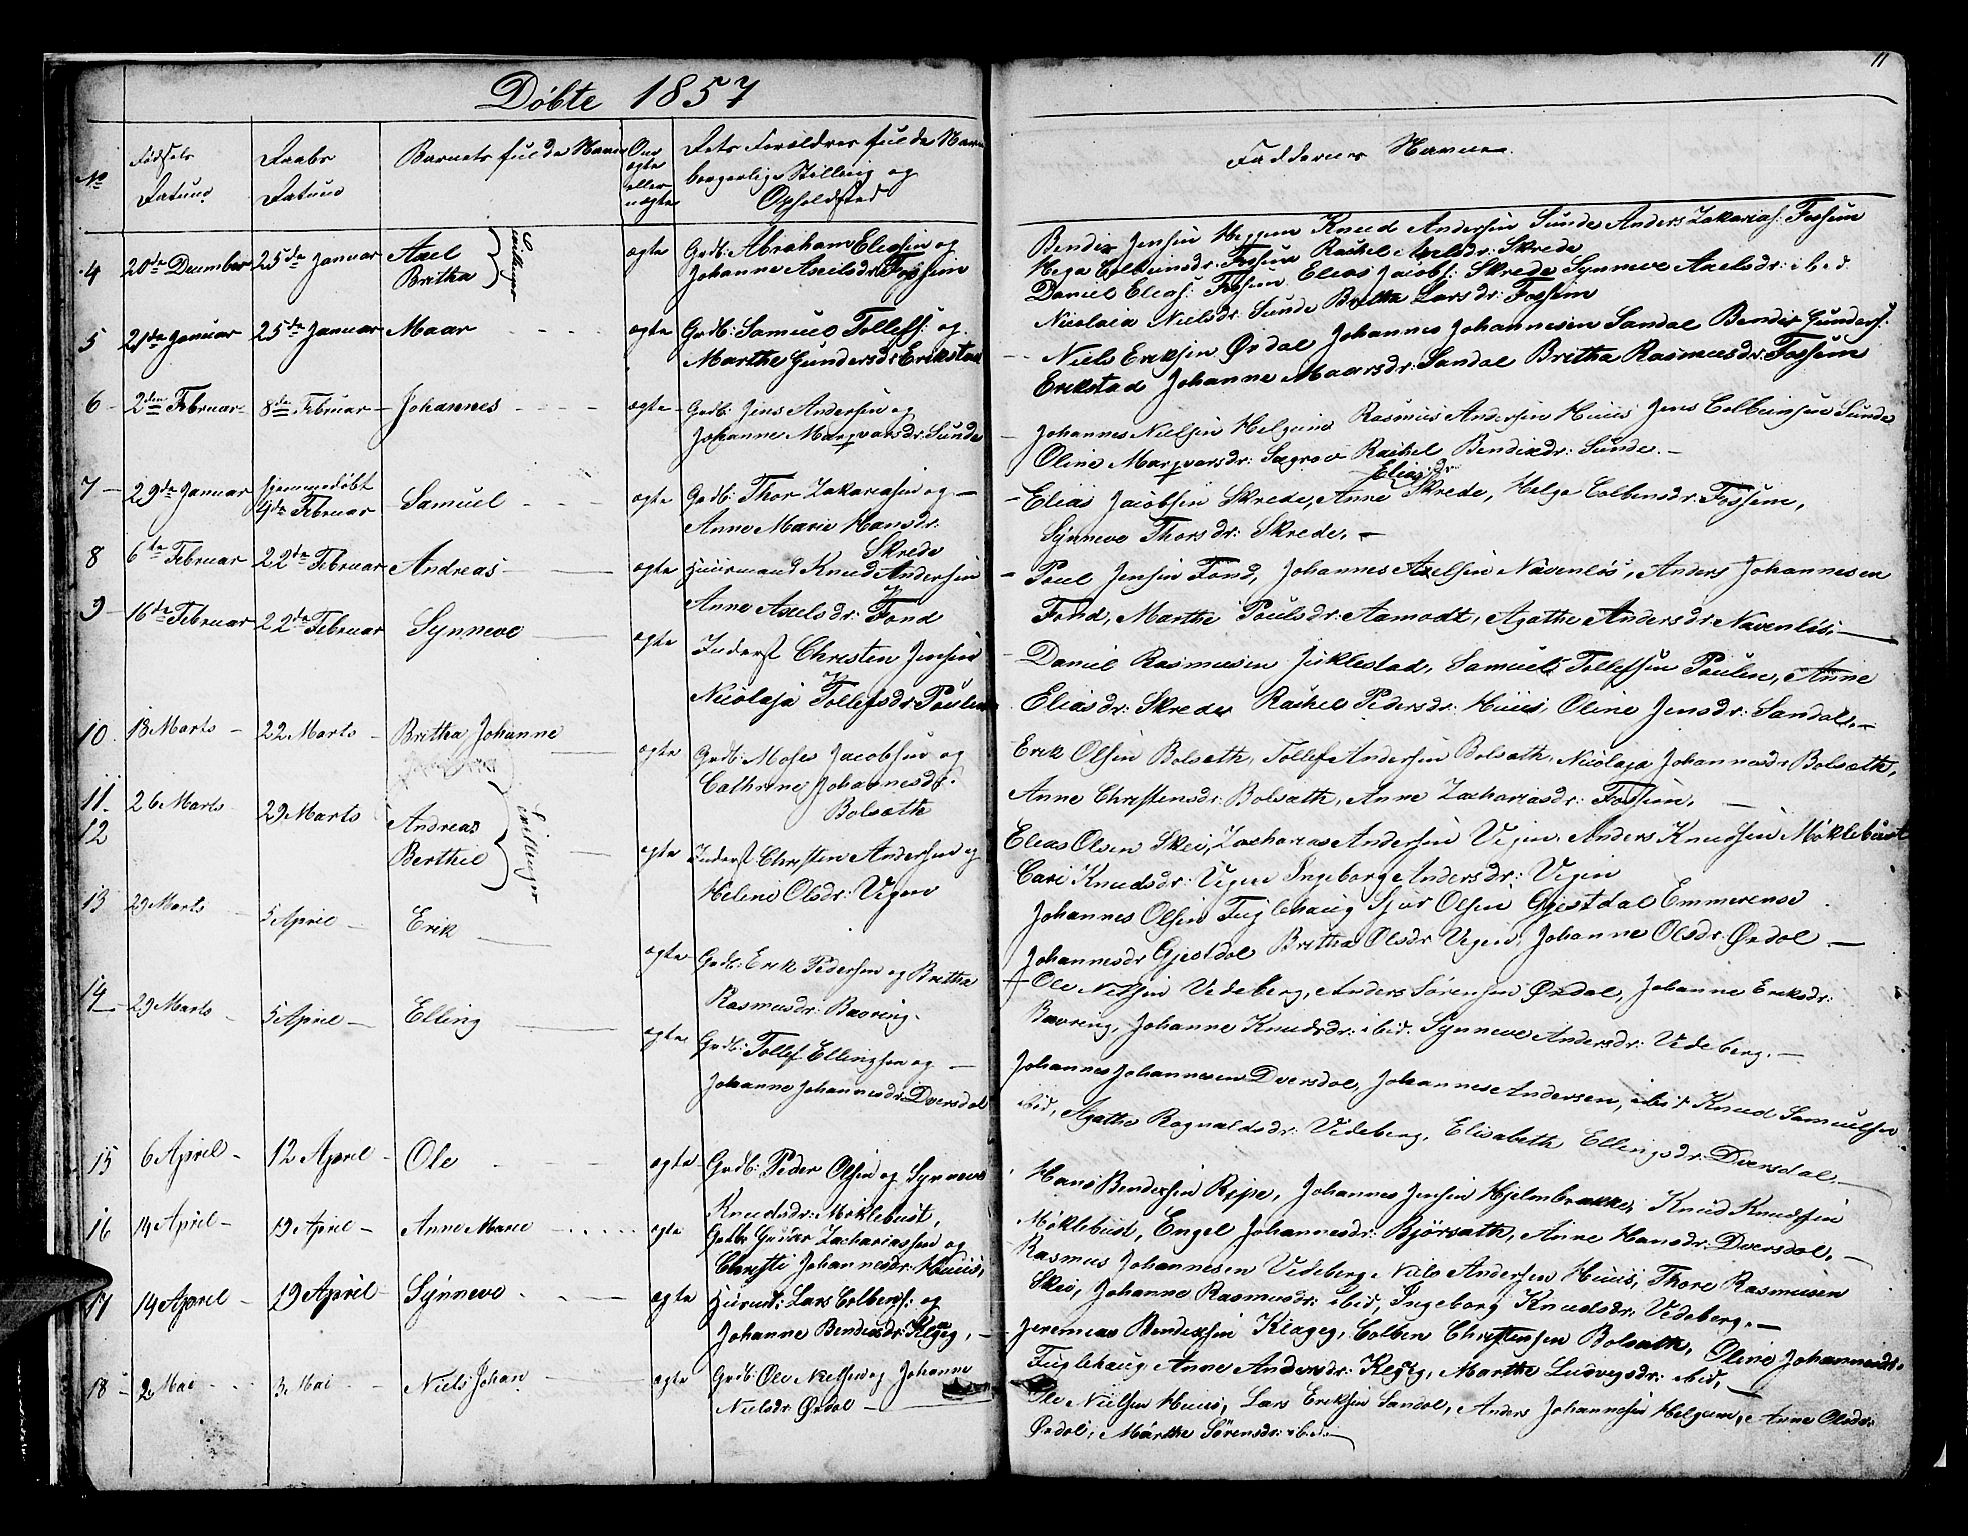 11
Döbte 1857
No
Fødsels Datum
Daabs Datum
Barnets fulde Navn
Om ægte eller uægte
Dets Forældres fulde Navn borgerlige Stilling og Opholdsted
Faddernes Navne
4 20de December 25de Januar Axel Britha Tvillinger ægte Grdb: Abraham Eliesen og
Johanne Axelsdr: Fossum
Bendix Jensen Heggem Knud Andersen Sunde Anders Zakarias: Fossum
Helga Colbeinsdr: Fossum Rachel Axelsdr: Skrede
Daniel Elias: Fossum Elias Jacobs: Skrede Synneve Axelsdr: ibid.
Nicolaia Nielsdr: Sunde Britha Larsdr: Fossum
5 21de Januar 25de Januar Maar ægte Grdb: Samuel Tollefs: og
Marthe Gundersdr: Erikstad
Niels Eriksen Ørdal Johannes Johannesen Sandal Bendix Gunders:
Erikstad Johanne Maarsdr: Sandal Britha Rasmusdr: Fossum
6 2den Februar 8de Februar Johannes ægte Grdb: Jens Andersen og
Johanne Marqvarsdr: Sunde
Johannes Nielsen Helgeim Rasmus Andersen Huus Jens Colbeinsen Sunde
Oline Marqvarsdr: Sægrov Rachel Bendixdr: Sunde.
7 29de Januar hjemmedøbt Februar Samuel ægte Grdb: Thor Zakariasen og
Anne Marie Hansdr:
Skrede
Elias Jacobsen Skrede, Anne Eliasdr Skrede, Helge Colbensdr: Fossum,
Synneve Thorsdr: Skrede.
8 6te Februar 22de Februar Andreas ægte Huusmand Knud Andersen og
Anne Axelsdr: Fond
Poul Jensen Fond, Johannes Axelsen Navenløs, Anders Johannesen
Fond, Marthe Poulsdr: Aamodt, Agathe Andersdr: Navenløs.
9 16de Februar 22de Februar Synneve ægte Inderst Christen Jensen og
Nicolaja Tollefsdr: Poulen
Daniel Rasmusen Jiklestad, Samuel Tollefsen Poulen, Anne
Eliasdr: Skrede Rachel Pedersdr: Huus, Oline Jensdr: Sandal.
10 18 Marts 22 Marts Britha Johanne ægte Grdb: Moses Jacobsen og
Cathrine Johannesdr:
Bolsæth
Erik Olsen Bolsæth, Tollef Andersen Bolsæth, Nicolaja Johannesdr: Bolsæth,
Anne Christensdr: Bolsæth, Anne Zachariasdr: Fossum.
11 12 26 Marts 29 Marts Andreas Berthe Tvillinger ægte Inderst Christen Andersen og
Helene Olsdr: Vegen
Elias Olsen Skei, Zacharias Andersen Vegen, Anders Knudsen Møklebust
Cari Knudsdr: Vegen Ingeborg Andersdr: Vegen
13 29 Marts 5 April Erik ægte Grdb: Erik Pedersen og Britha
Rasmusdr: Baoring.
Johannes Olsen Fuglehaug Sjur Olsen Gjestdal Emmerense
Johannesdr: Gjestdal Britha Olsdr Vegen, Johanne Olsdr: Ørdal
14 29 Marts 5 April Elling ægte Grdb: Tollef Ellingsen og
Johanne Johannesdr: Dversdal
Ole Nielsen Vedeberg, Anders Sørensen Ørdal, Johanne Eriksdr:
Baoring, Johanne Knudsdr: ibid: Synneve Andersdr: Vedeberg.
Johannes Johannesen Dversdal, Johannes Andersen, ibid Knud Samuelsen
ibid, Agathe Rognaldsdr: Vedeberg, Elisabeth Ellingsdr: Dversdal.
15 6 April 12 April Ole ægte Grdb: Peder Olsen og Synneve
Knudsdr: Møklebust,
Hans Bendixsen Ripe, Johannes Jensen Hjelmbrække, Knud Knudsen
Møklebust, Engel Johannesdr: Bjørsæth, Anne Hansdr: Dversdal.
16 14 April 19 April Anne Marie ægte Grdb: Gunder Zachariassen og
Christi Johannesdr: Huus,
Rasmus Johannesen Vedeberg, Niels Andersen Huus, Thore Rasmusen
Skei, Johanne Rasmusdr: ibid, Ingeborg Knudsdr: Vedeberg.
17 14 April 19 April Synneve ægte Huusm: Lars Colbens: og
Johanne Bendixdr: Klageg,
Jeremias Bendixsen Klageg, Colben Christensen Bolsæth, Oline Johannesdr:
Fuglehaug Anne Andersdr: Klageg, Marthe Ludvigsdr: ibid,
18 2 Mai 3 Mai Niels Johan ægte Grdb: Ole Nielsen og Johanne
Nielsdr: Ørdal
Ole Nielsen Huus, Lars Eriksen Sandal, Anders Johannesen Helgeim, Anne Olsdr:
Ørdal, Marthe Sørensdr: ibid.